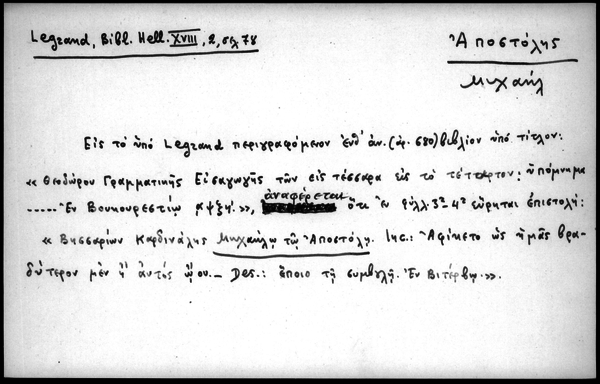 Legrand, Bibl. Hell. XVIII, 2, σελ 78
Ἀποστόλης
Μιχαήλ
Εἰς τὸ ὑπὸ Legrand περιγραφόμενον ἐνθ' ἀν. (ἀρ. 680) βιβλίον ὑπὸ τίτλον:
« Θεοδώρου Γραμματικῆς Εἰσαγωγῆς τῶν εἰς τέσσαρα εἰς τὸ τέταρτον: ὑπόμνημα
..... Ἐν Βουκουρεστίῳ αψξη'. », ἀναφέρεται ὅτι ἐν φύλλ. 3ᵃ- 4ᵃ εὕρηται ἐπιστολή:
« Βησσαρίων Καρδινάλης Μιχαήλῳ τῷ Ἀποστόλῃ. Inc.: Ἀφίκετο ὡς ἡμᾶς βρα-
δύτερον μὲν ἢ αὐτὸς ᾤου. – Des.: ἕποιο τῇ συμβουλῇ. Ἐν Βιτέρβῳ. ».